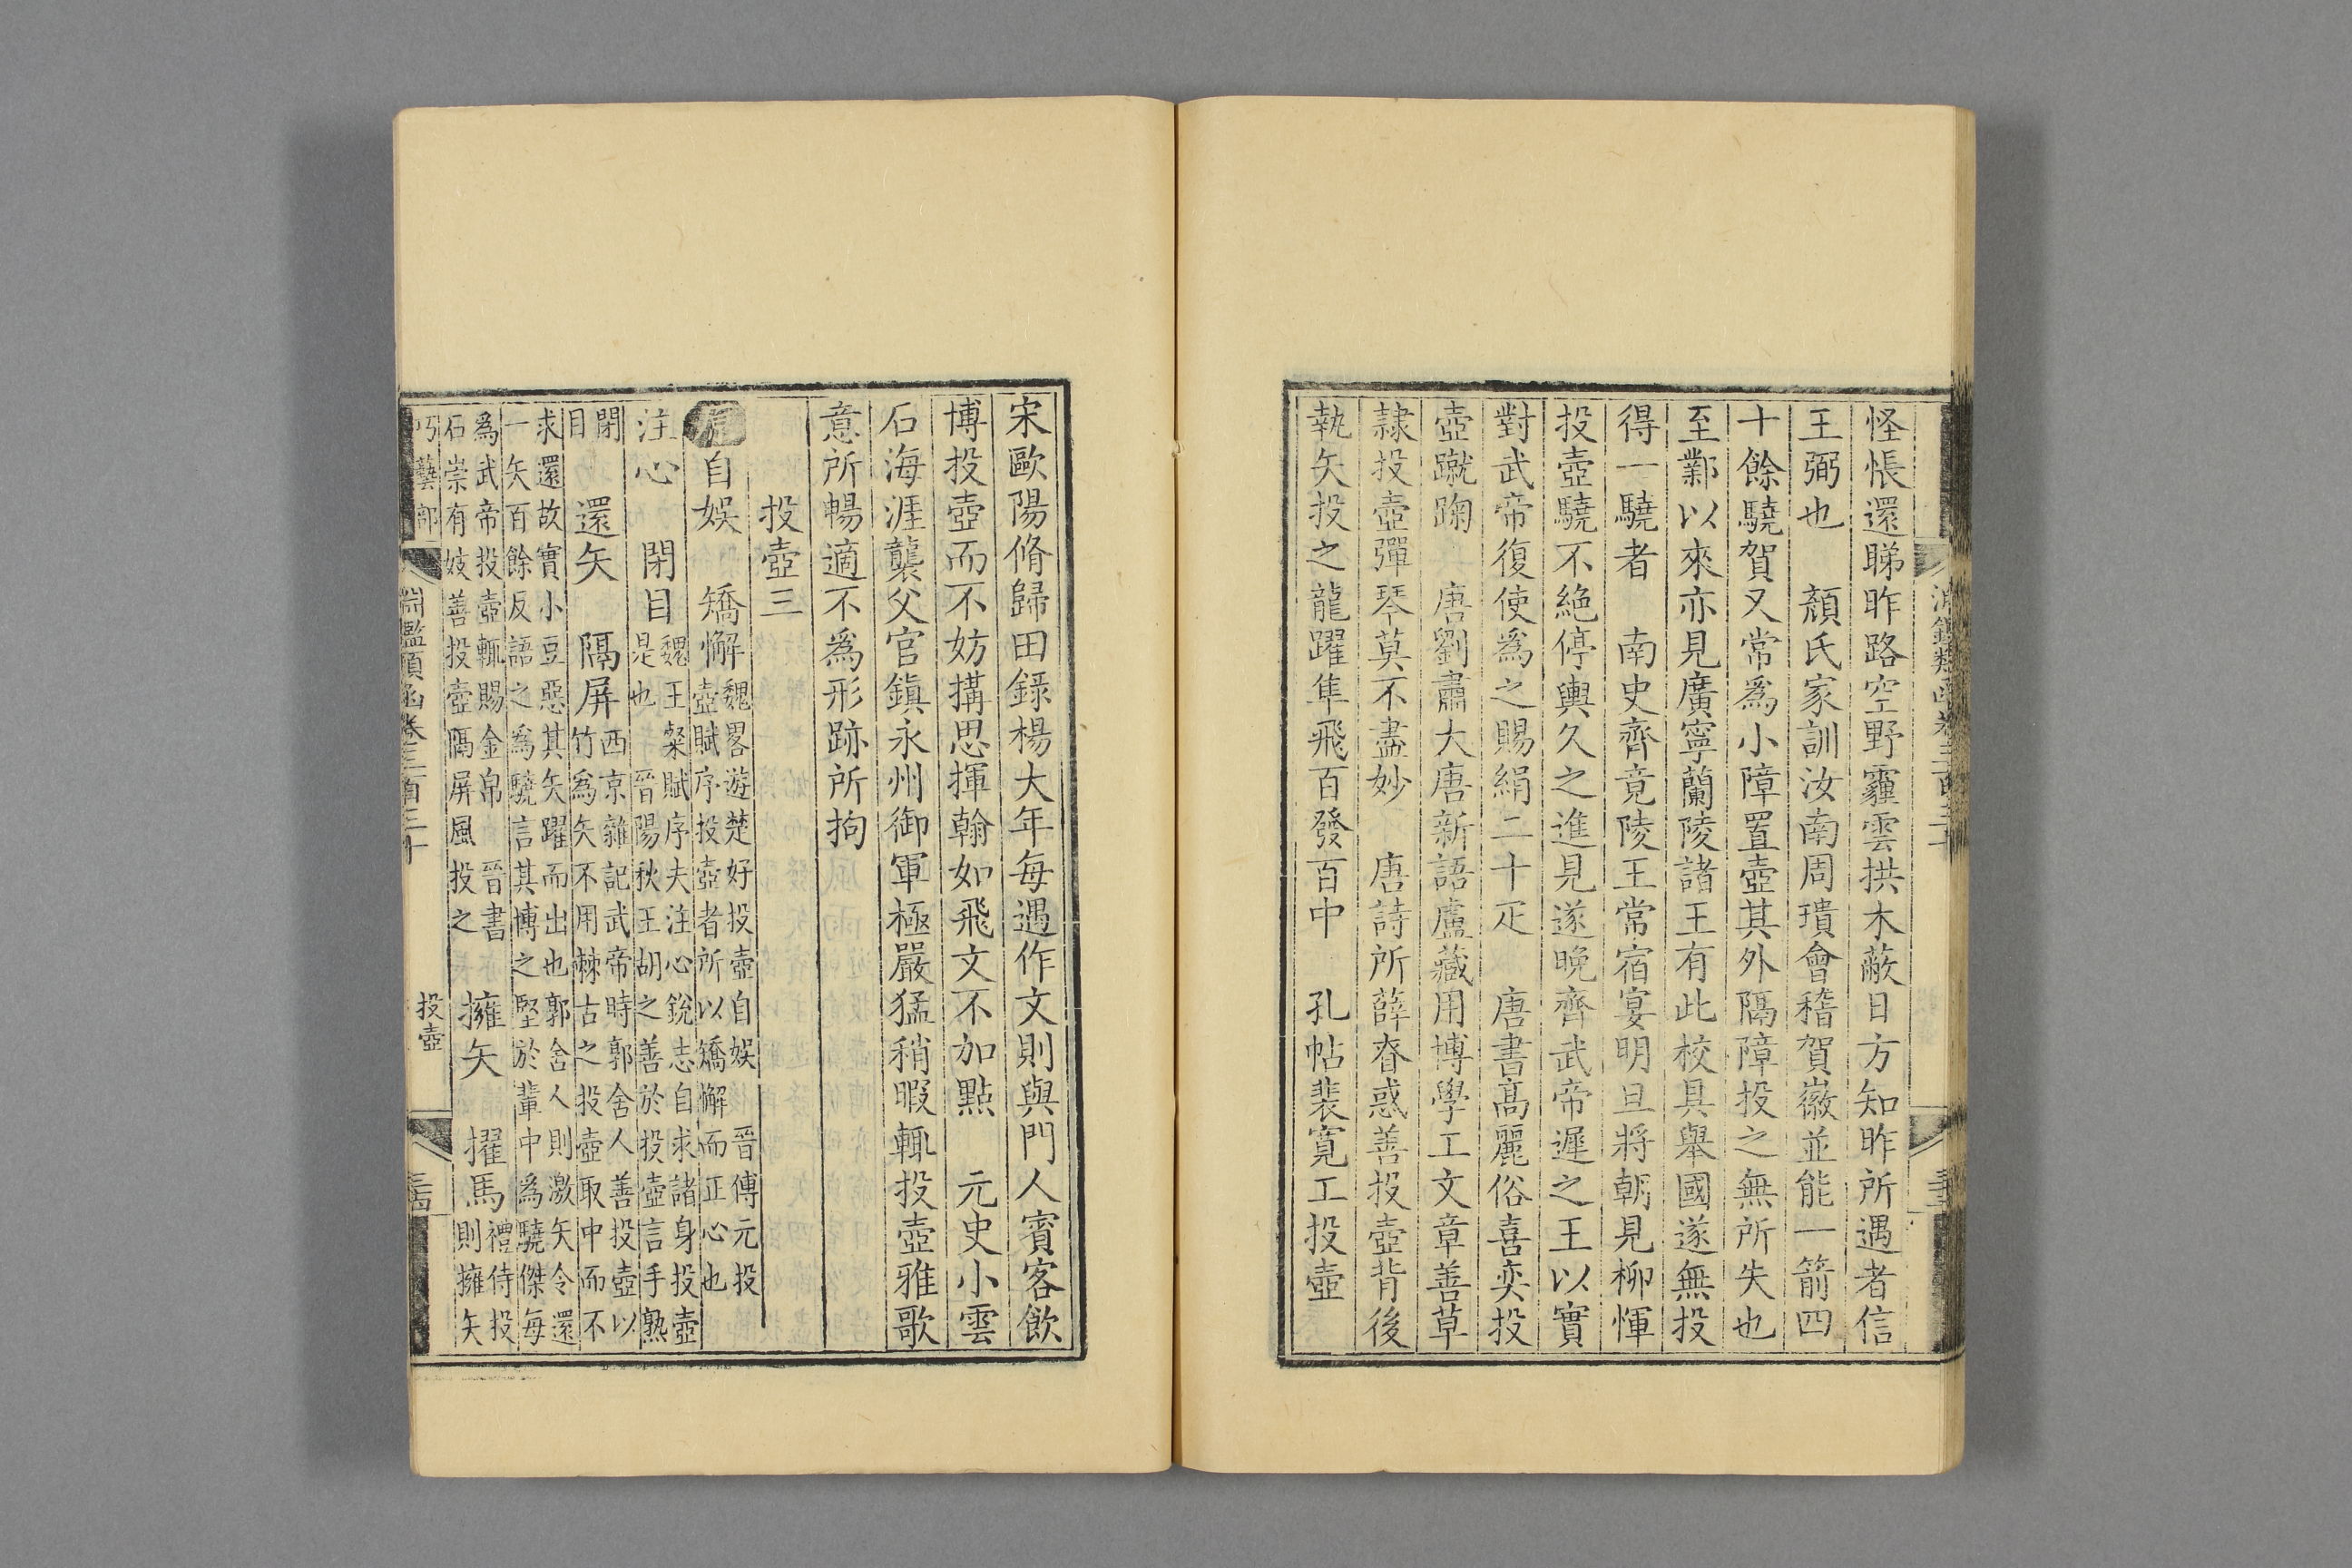 怪悵還睇昨路空野霾雲拱木蔽日方知昨所遇者信
王弼也　顏氏家訓汝南周璝會稽賀徽並能一箭四
十餘驍賀又常爲小障置壺其外隔障投之無所失也
至鄴以來亦見廣寧蘭陵諸王有此校具舉國遂無投
得一驍者　南史齊竟陵王常宿宴明旦將朝見柳惲
投壺驍不絶停輿久之進見遂晚齊武帝遲之王以實
對武帝復使爲之賜絹二十疋　唐書高麗俗喜奕投
壺蹴踘　唐劉肅大唐新語盧藏用博學工文章善草
隷投壺彈琴莫不盡妙　唐詩所薛眘惑善投壺背後
執矢投之龍躍隼飛百發百中　孔帖裴寛工投壺
宋歐陽脩歸田録楊大年每遇作文則與門人賓客飲
博投壺而不妨搆思揮翰如飛文不加點　元史小雲
石海涯襲父官鎭永州御軍極嚴猛稍暇輒投壺雅歌
意所暢適不爲形跡所拘
投壺三
自娱　矯懈　魏畧遊楚好投壺自娱　晉傅元投壺賦序投壺者所以矯懈而正心也
注心　閉目　魏王粲賦序夫注心銳志自求諸身投壺是也　晉陽秋王胡之善於投壺言手熟
閉目　還矢　隔屏　西京雜記武帝時郭舍人善投壺以竹爲矢不用棘古之投壺取中而不
求還故實小豆惡其矢躍而出也郭舍人則激矢令還一矢百餘反語之爲驍言其博之堅於輩中爲驍傑每
爲武帝投壺輒賜金帛　晉書石崇有妓善投壺隔屏風投之　擁矢　擢馬　禮侍投則擁矢
巧藝部　淵鑑類函卷三百三十　投壺